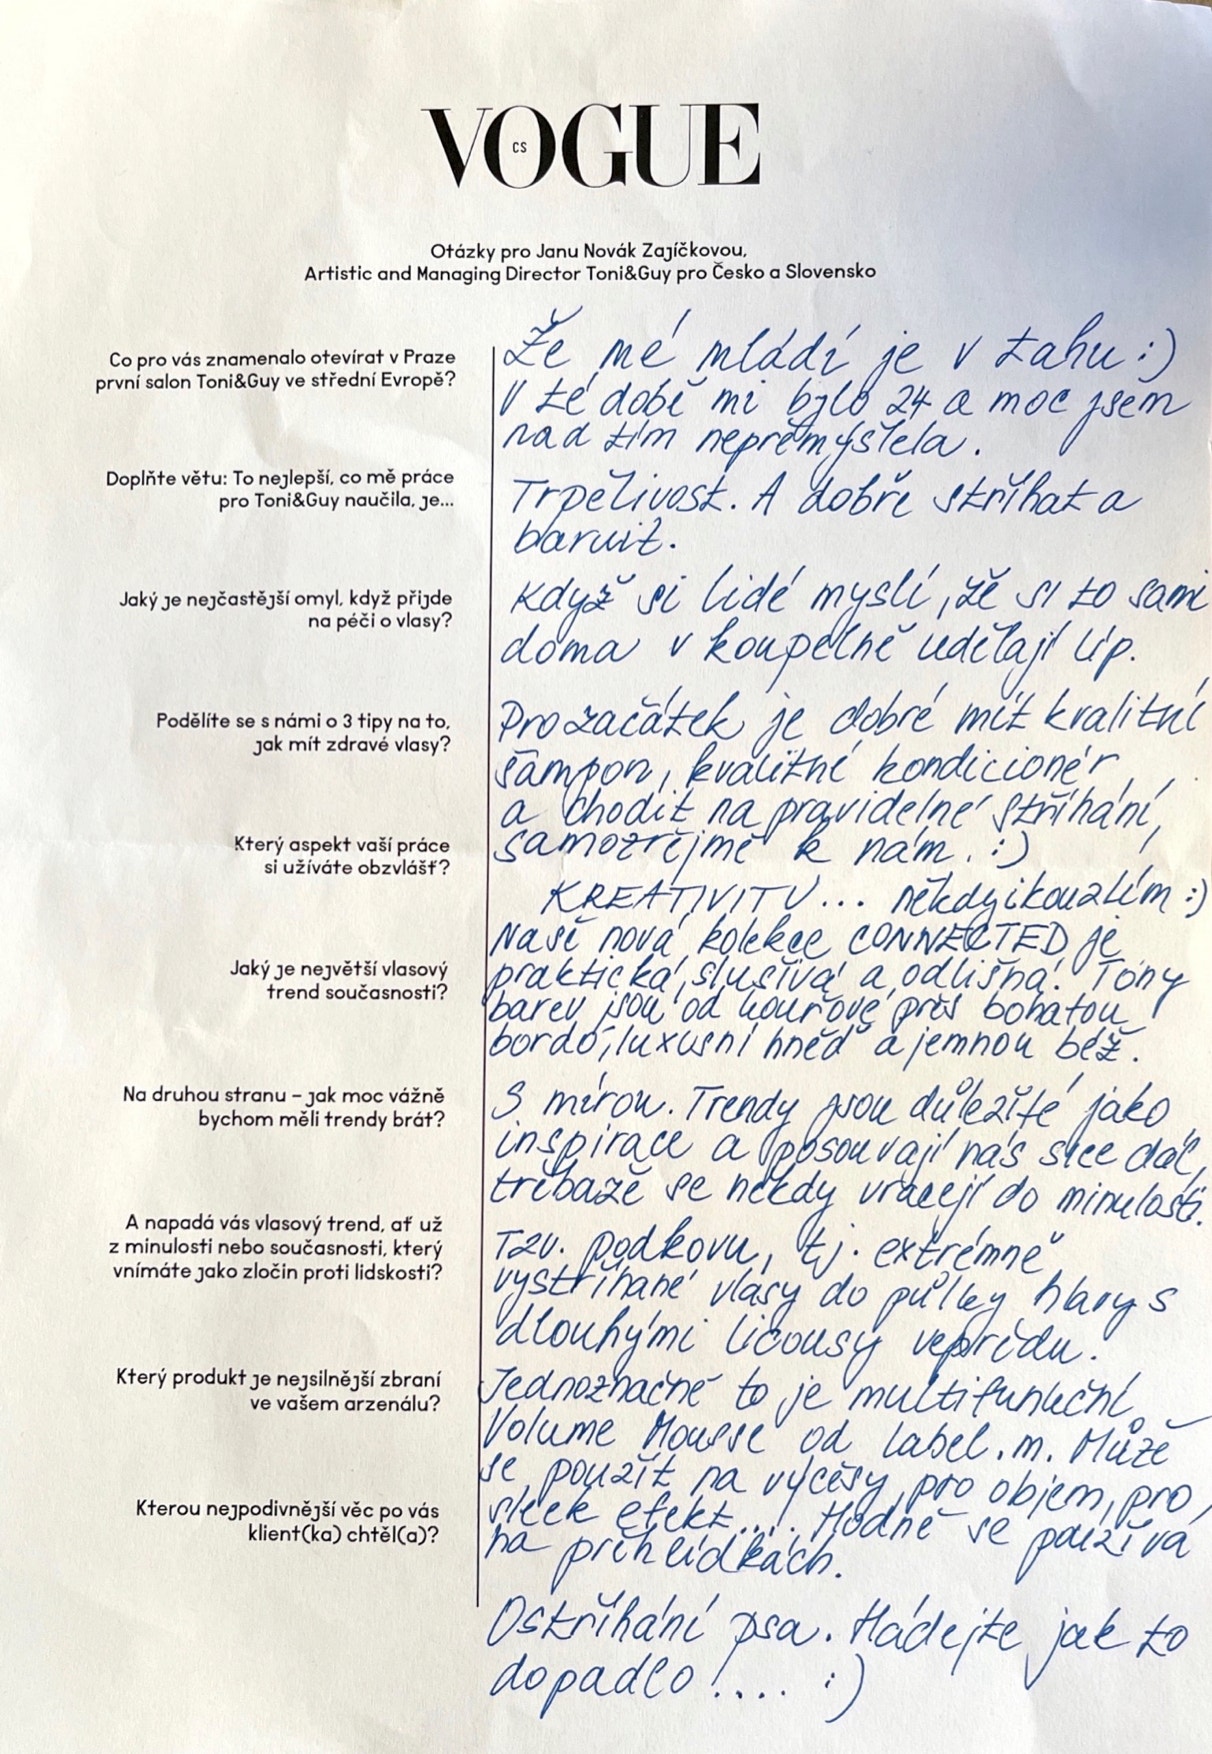 VOGUE
CS
Otázky pro Janu Novák Zajíčkovou,
Artistic and Managing Director Toni&Guy pro Česko a Slovensko
Co pro vás znamenalo otevírat v Praze
první salon Toni&Guy ve střední Evropě?
Že mé mládí je v tahu :)
V té době mi bylo 24 a moc jsem
nad tím nepřemýšlela.
Doplňte větu: To nejlepší, co mě práce
pro Toni&Guy naučila, je...
Trpělivost. A dobře stříhat a
barvit.
Jaký je nejčastější omyl, když přijde
na péči o vlasy?
Když si lidé myslí, že si to sami
doma v koupelně udělají líp.
Podělíte se s námi o 3 tipy na to,
jak mít zdravé vlasy?
Pro začátek je dobré mít kvalitní
šampon, kvalitní kondicionér
a chodit na pravidelné stříhání,
samozřejmě k nám. :)
Který aspekt vaší práce
si užíváte obzvlášť?
KREATIVITU... někdy i kouzlím :)
Jaký je největší vlasový
trend současnosti?
Naše nová kolekce CONNECTED je
praktická, slušivá a odlišná. Tóny
barev jsou od kouřové přes bohatou
bordó, luxusní hněď a jemnou béž.
Na druhou stranu – jak moc vážně
bychom měli trendy brát?
S mírou. Trendy jsou důležité jako
inspirace a posouvají nás sice dál,
třebaže se někdy vracejí do minulosti.
A napadá vás vlasový trend, ať už
z minulosti nebo současnosti, který
vnímáte jako zločin proti lidskosti?
Tzv. podkovu, tj. extrémně
vystříhané vlasy do půlky hlavy s
dlouhými licousy vepředu.
Který produkt je nejsilnější zbraní
ve vašem arzenálu?
Jednoznačně to je multifunkční
Volume Mousse od label.m. Může
se použít na výčesy, pro objem, pro
sleek efekt.... Hodně se používá
na přehlídkách.
Kterou nejpodivnější věc po vás
klient(ka) chtěl(a)?
Ostříhání psa. Hádejte jak to
dopadlo!.... :)